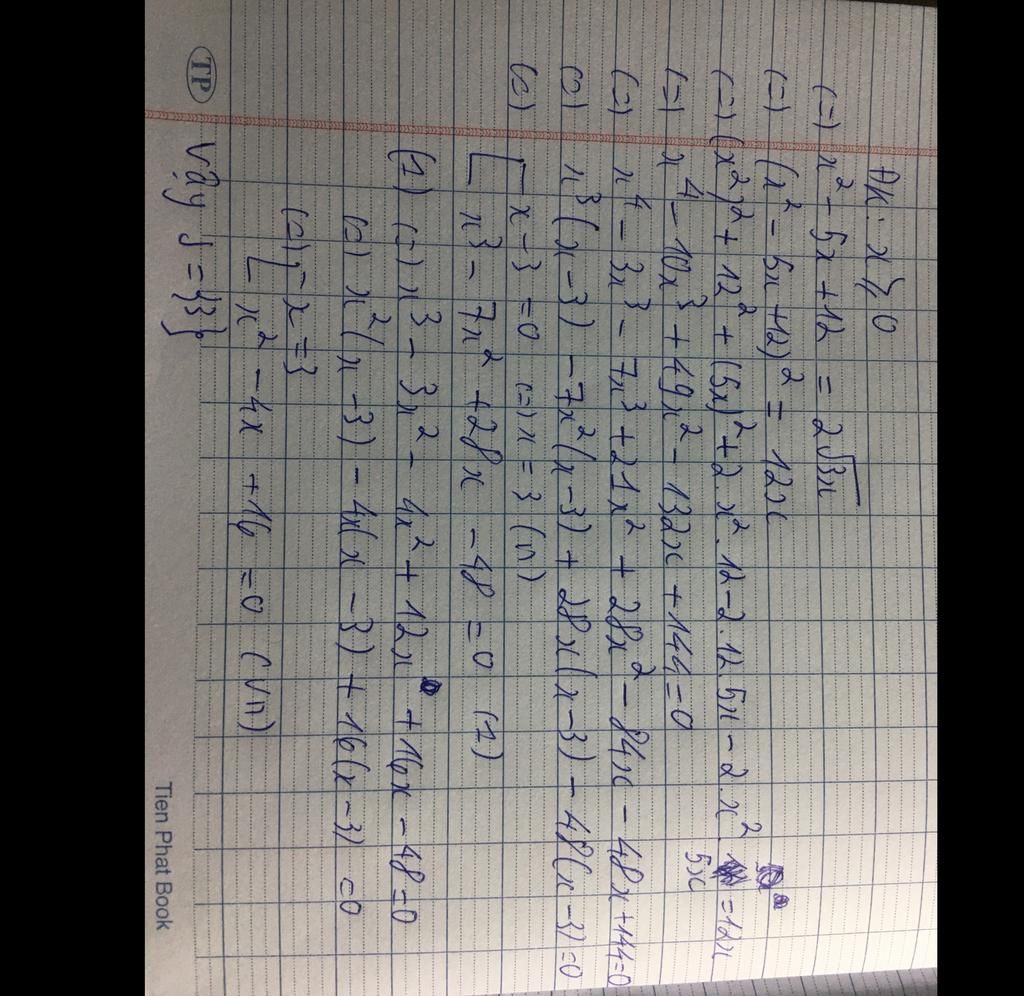 ĐK: x ⩾ 0
(=) x² - 5x + 12 = 2√3x
(=) (x² - 5x + 12)² = 12x
(=) (x²)² + 12² + (5x)² + 2.x².12 - 2.12.5x - 2.x².5x = 12x
(=) x⁴ - 10x³ + 49x² - 132x + 144 = 0
(=) x⁴ - 3x³ - 7x³ + 21x² + 28x² - 84x - 48x + 144 = 0
(=) x³(x - 3) - 7x²(x - 3) + 28x(x - 3) - 48(x - 3) = 0
(=) [ x - 3 = 0 (=) x = 3 (n)
x³ - 7x² + 28x - 48 = 0 (1)
(1) (=) x³ - 3x² - 4x² + 12x + 16x - 48 = 0
(=) x²(x - 3) - 4x(x - 3) + 16(x - 3) = 0
(=) [ x = 3
x² - 4x + 16 = 0 (vn)
Vậy S = {3}
TP
Tien Phat Book